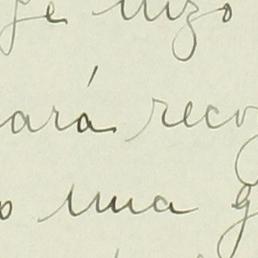 ge hizo
ará reco
o una g